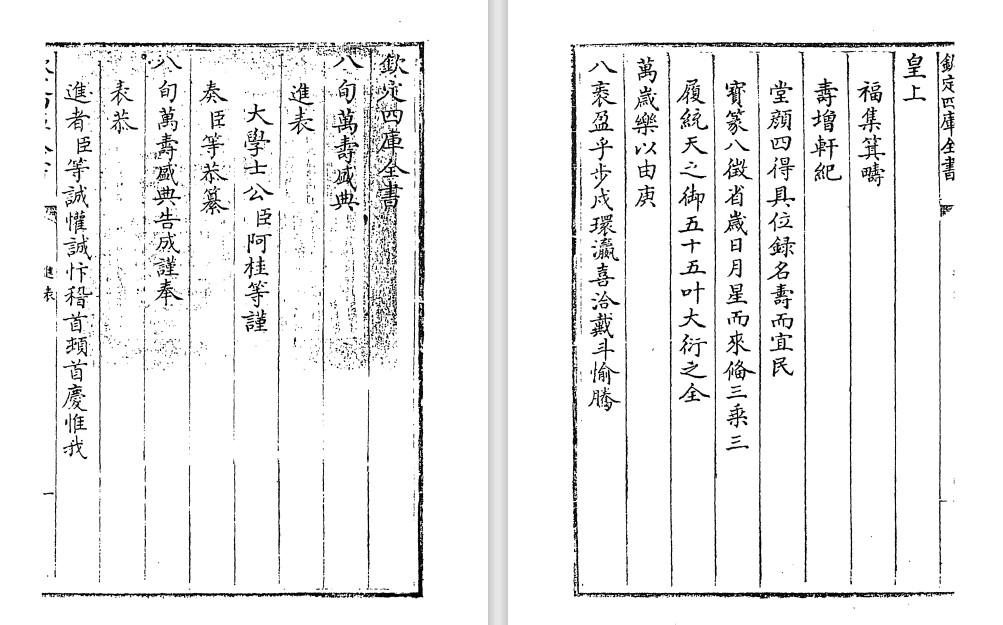 欽定四庫全書
八旬萬壽盛典
進表
大學士公臣阿桂等謹
奏臣等恭纂
八旬萬壽盛典告成謹奉
表恭
進者臣等誠懽誠忭稽首頓首慶惟我
進表
一
欽定四庫全書
皇上
福集箕疇
壽增軒紀
堂顔四得具位録名壽而宜民
寳篆八徵省歲日月星而來偹三乘三
履統天之御五十五叶大衍之全
萬歲樂以由庚
八袠盈乎步戍環瀛喜洽戴斗愉騰